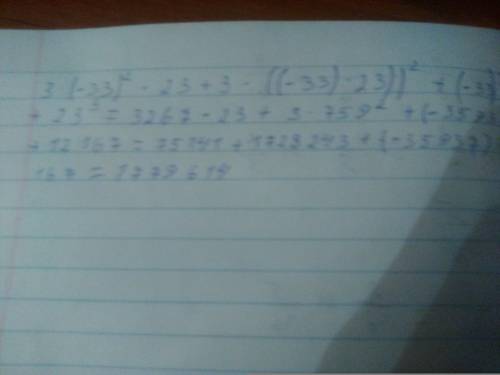 3 (-33)² - 23 + 3 - ((-33) · 23))² + (-33)
+ 23³ = 3267 - 23 + 3 · 759² + (-3593
+ 12167 = 75141 + 1728243 + (-35937)
167 = 1779614